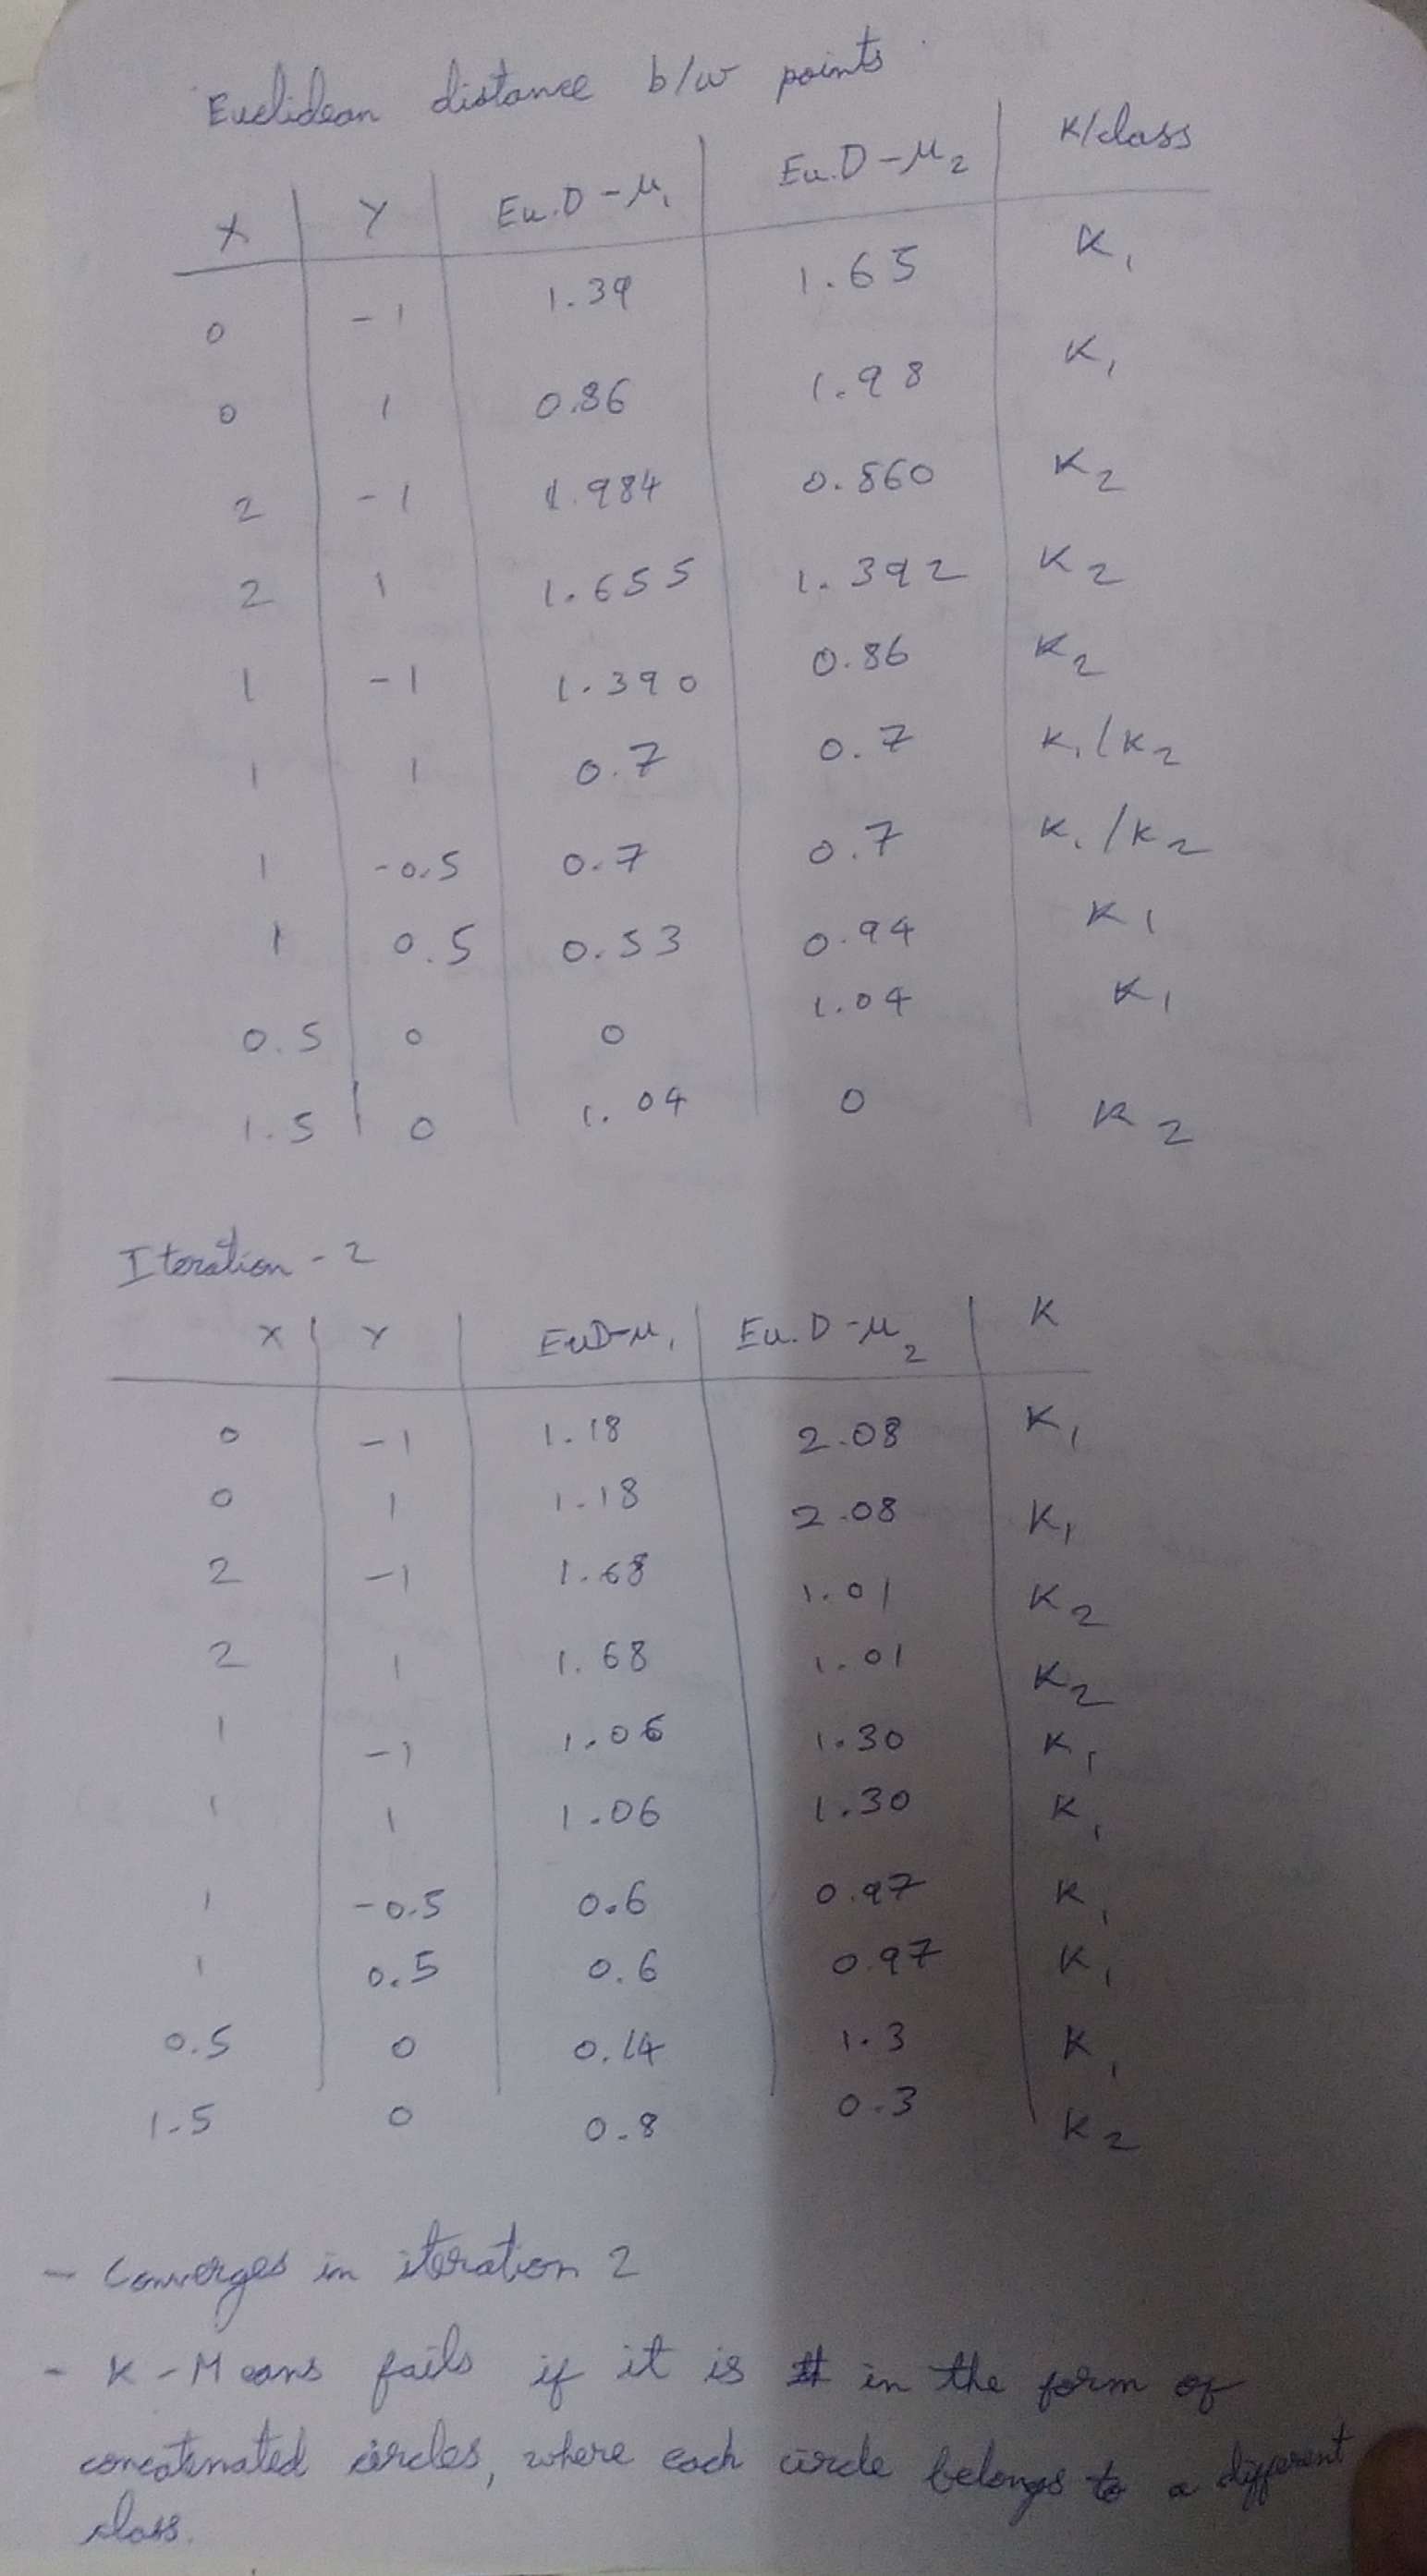 Euclidean distance b/w points
X Y Eu.D-μ1 Eu.D-μ2 K/class
0 -1 1.39 1.65 K1
0 1 0.86 1.98 K1
2 -1 1.984 0.860 K2
2 1 1.655 1.392 K2
1 -1 1.390 0.86 K2
1 1 0.7 0.7 K1/K2
1 -0.5 0.7 0.7 K1/K2
1 0.5 0.53 0.94 K1
0.5 0 0 1.04 K1
1.5 0 1.04 0 K2
Iteration-2
X Y EuD-μ1 Eu.D-μ2 K
0 -1 1.18 2.08 K1
0 1 1.18 2.08 K1
2 -1 1.68 1.01 K2
2 1 1.68 1.01 K2
1 -1 1.06 1.30 K1
1 1 1.06 1.30 K1
1 -0.5 0.6 0.97 K1
1 0.5 0.6 0.97 K1
0.5 0 0.14 1.3 K1
1.5 0 0.8 0.3 K2
- Converges in iteration 2
- K-Means fails if it is in the form of
concatenated circles, where each circle belongs to a different
class.